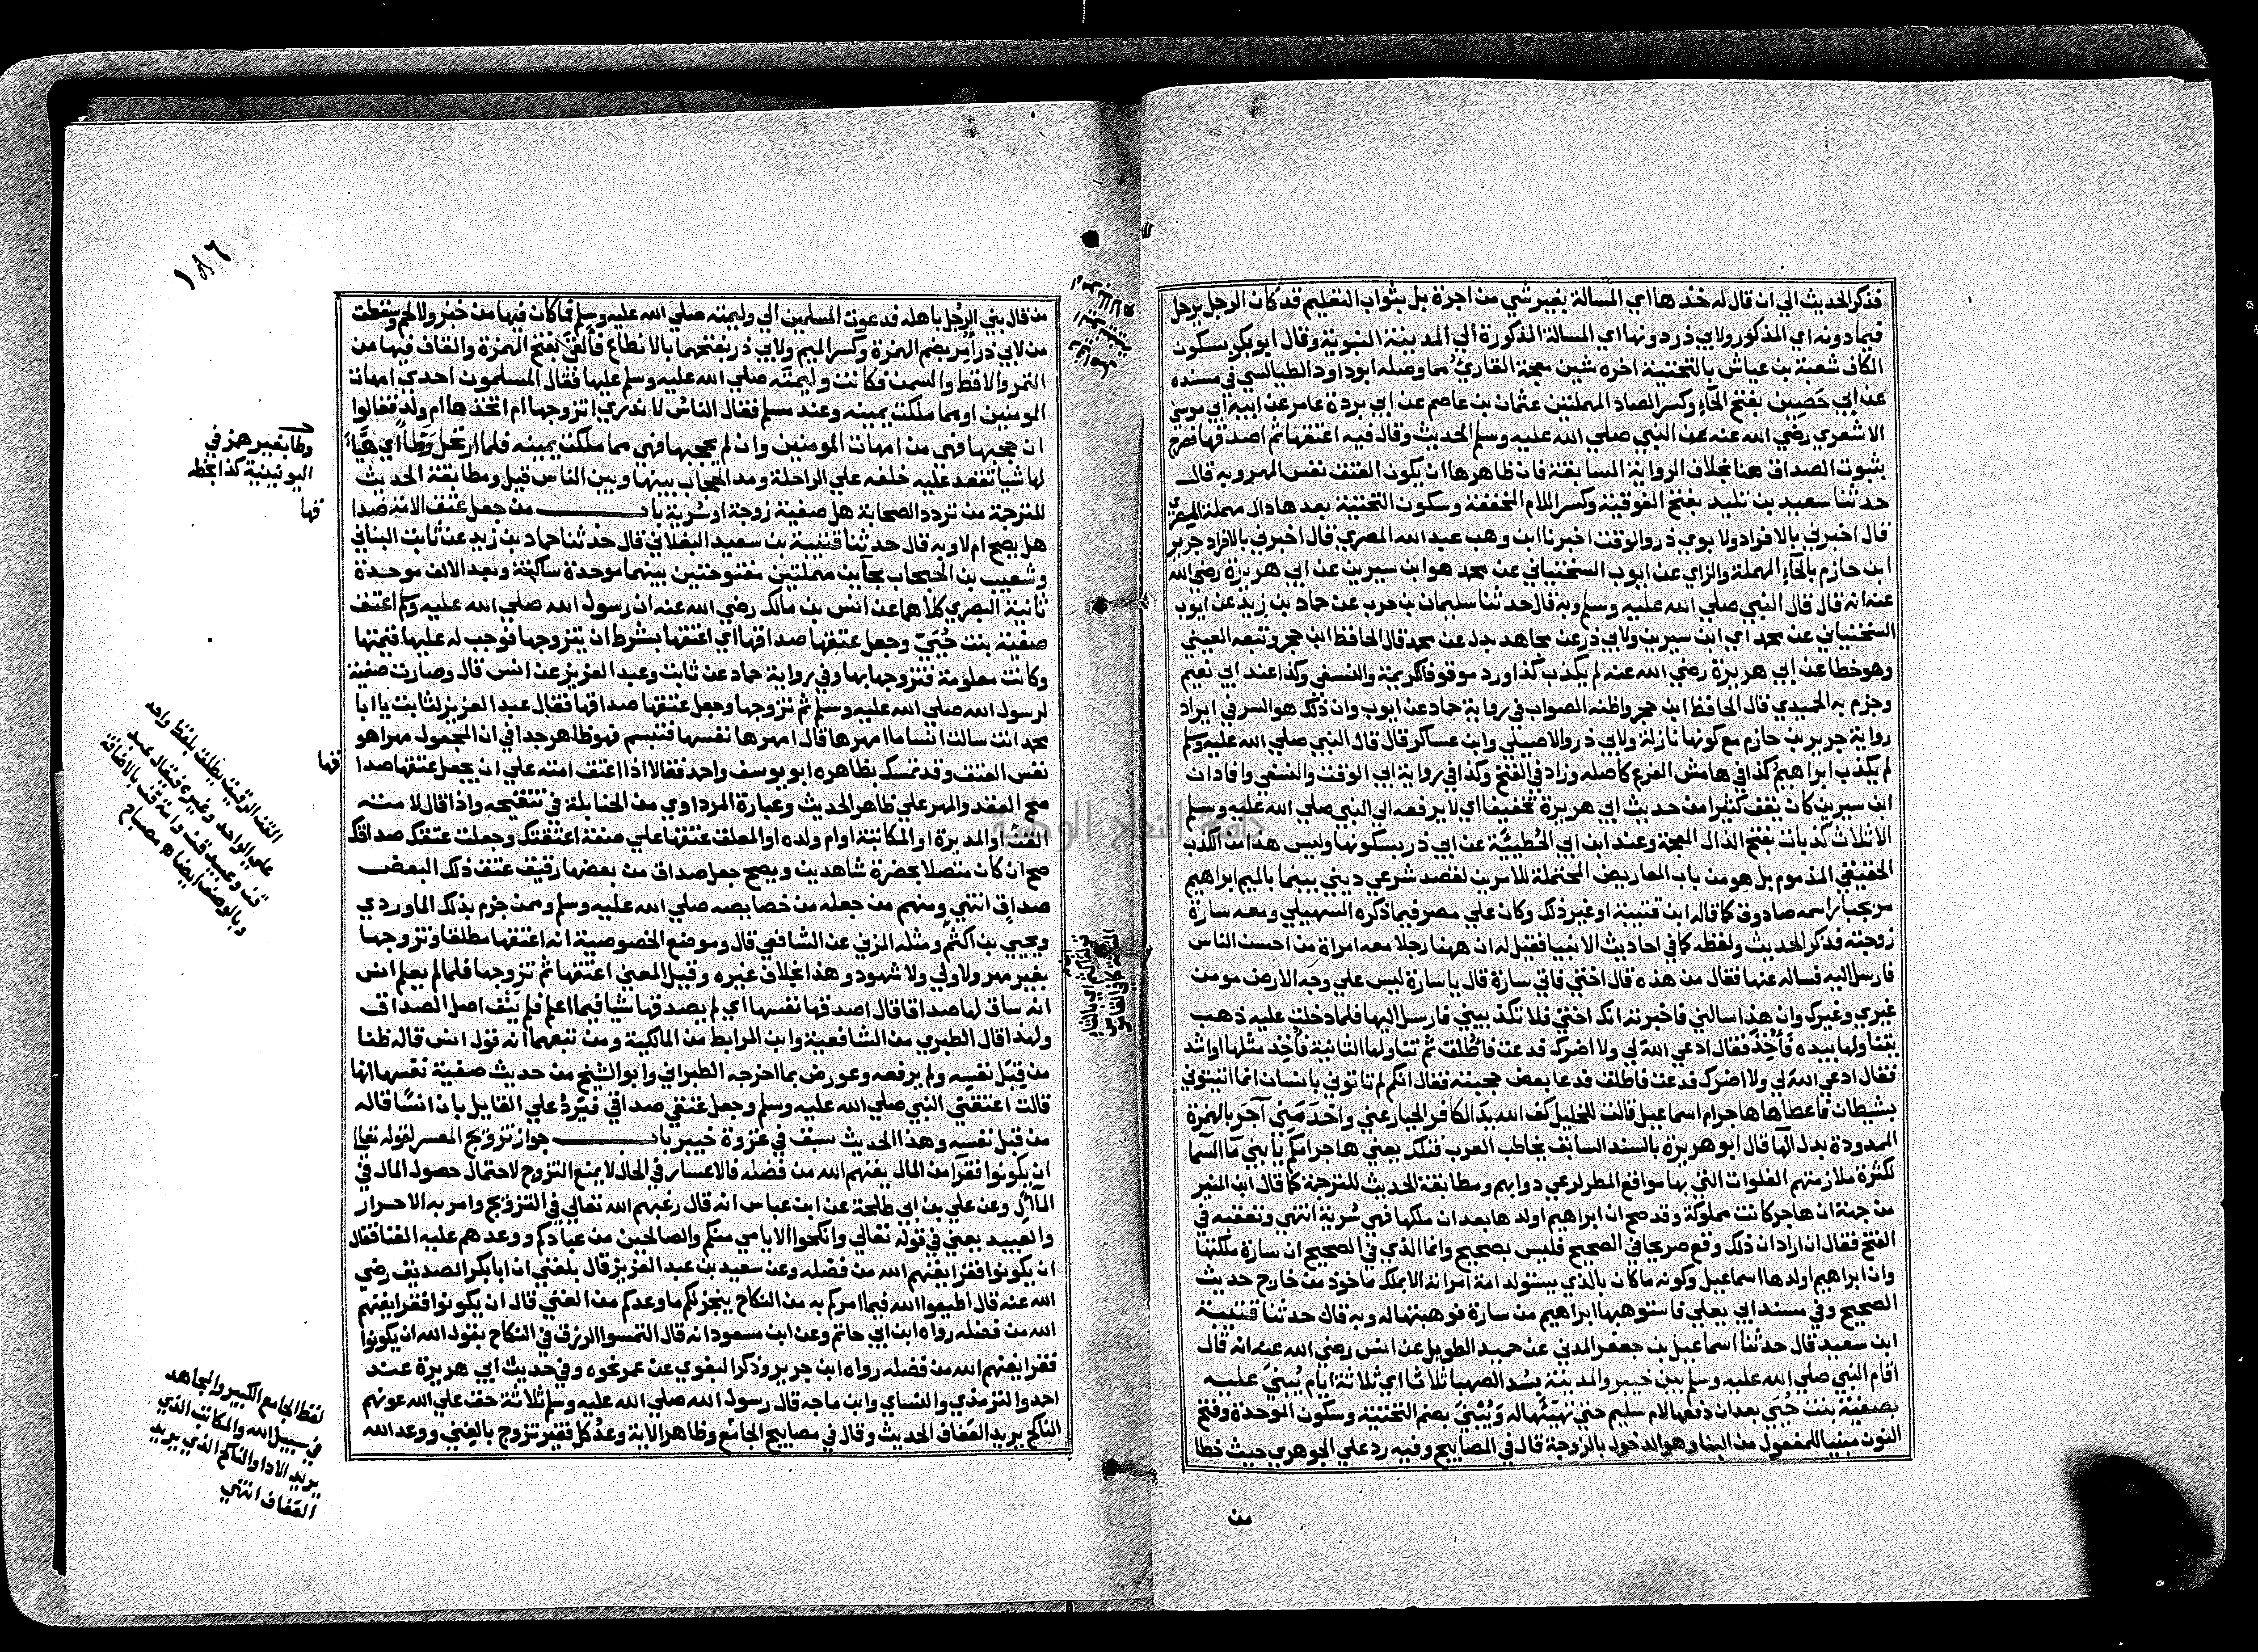 فذكر الحديث الي ان قال له خذها اي المسالة بغير شي من اجرة بل بثواب التعليم قد كان الرجل يرحل
فيما دونه اي المذكور ولابي ذر دونها اي المسالة المذكورة الي المدينة النبوية وقال ابو بكر بسكون
الكاف شعبة بن عياش بالتحتية اخره شين معجمة القاري مما وصله ابو داود الطيالسي في مسنده
عن ابي حَصِين بفتح الحاء وكسر الصاد المهملتين عثمان بن عاصم عن ابي بردة عامر عن ابيه ابي موسي
الاشعري رضي الله عنه عن النبي صلي الله عليه وسلم الحديث وقال فيه اعتقها ثم اصدقها فصرح
بثبوت الصداق هنا بخلاف الرواية السابقة فان ظاهرها ان يكون العتق نفس المهر وبه قال
حدثنا سعيد بن تليد بفتح الفوقية وكسر اللام المخففة وسكون التحتية بعدها دال مهملة المصري
قال اخبرني بالافراد ولابوي ذر والوقت اخبرنا ابن وهب عبد الله المصري قال اخبرني بالافراد جرير
ابن حازم بالحاء المهملة والزاي عن ايوب السختياني عن محمد هو ابن سيرين عن ابي هريرة رضي الله
عنه انه قال قال النبي صلي الله عليه وسلم وبه قال حدثنا سليمان بن حرب عن حماد بن زيد عن ايوب
السختياني عن محمد اي ابن سيرين ولابي ذر عن مجاهد بدل عن محمد قال الحافظ ابن حجر وتبعه العيني
وهو خطا عن ابي هريرة رضي الله عنه لم يكذب كذا ورد موقوفا لكريمة والنسفي وكذا عند ابي نعيم
وجزم به الحميدي قال الحافظ ابن حجر واظنه الصواب في رواية حماد عن ايوب وان ذلك هو السر في ايراد
رواية جرير بن حازم مع كونها نازلة ولابي ذر والاصيلي وابن عساكر قال قال النبي صلي الله عليه وسلم
لم يكذب ابراهيم كذا في هامش الفرع كاصله وزاد في الفتح وكذا في رواية ابي الوقت والنسفي وافاد ان
ابن سيرين كان يقف كثيرا من حديث ابي هريرة تخفيفا اي لا يرفعه الي النبي صلي الله عليه وسلم
الا ثلاث كذبات بفتح الذال المعجمة وعند ابن ابي الحُطيئة عن ابي ذر بسكونها وليس هذا من الكذب
الحقيقي المذموم بل هو من باب المعاريض المحتملة للامرين لقصد شرعي ديني بينما بالميم ابراهيم
مر بجبار اسمه صادوق كما قاله ابن قتيبة او غير ذلك وكان علي مصر فيما ذكره السهيلي ومعه سارة
زوجته فذكر الحديث ولفظه كما في احاديث الانبيا فقيل له ان ههنا رجلا معه امراة من احسن الناس
فارسل اليه فساله عنها فقال من هذه قال اختي فاتي سارة قال يا سارة ليس علي وجه الارض مومن
غيري وغيرك وان هذا سالني فاخبرته انك اختي فلا تكذبيني فارسل اليها فلما دخلت عليه ذهب
يتناولها بيده فَاُخِذَ فقال ادعي الله لي ولا اضرك فدعت فاُطلق ثم تناولها الثانية فاُخِذ مثلها او اشد
فقال ادعي الله لي ولا اضرك فدعت فاطلق فدعا بعض حجبته فقال انكم لم تاتوني بانسان انما اتيتوني
بشيطان فاعطاها هاجر ام اسماعيل قالت للخليل كف الله يد الكافر الجبار عني واخدَمَني آجَر بالهمزة
الممدودة بدل الها قال ابو هريرة بالسند السابق يخاطب العرب فتلك يعني هاجر امكم يا بني ما السما
لكثرة ملازمتهم الفلوات التي بها مواقع المطر لرعي دوابهم ومطابقة الحديث للترجمة كما قال ابن المنير
من جهة ان هاجر كانت مملوكة وقد صح ان ابراهيم اولدها بعد ان ملكها فهي سُرية انتهي وتعقبه في
الفتح فقال ان اراد ان ذلك وقع صريحا في الصحيح فليس بصحيح وانما الذي في الصحيح ان سارة ملكتها
وان ابراهيم اولدها اسماعيل وكونه ما كان بالذي يستولد امة امراته الا بملك ماخوذ من خارج حديث
الصحيح وفي مسند ابي يعلي فاستوهبها ابراهيم من سارة فوهبتها له وبه قال حدثنا قتيبة
ابن سعيد قال حدثنا اسماعيل بن جعفر المدني عن حميد الطويل عن انس رضي الله عنه انه قال
اقام النبي صلي الله عليه وسلم بين خيبر والمدينة بسُد الصهبا ثلاثا اي ثلاثة ايام يُبنيَ عليه
بصفية بنت حُيَي بعد ان دفعها لام سليم حتي تهيّئها له وَيُبْنَيَ بضم التحتية وسكون الموحدة وفتح
النون مبنيا للمفعول من البنا وهو الدخول بالزوجة قال في المصابيح وفيه رد علي الجوهري حيث خطا
من
١٨٦
من قال بني الرجل باهله فدعوت المسلمين الي وليمته صلي الله عليه وسلم فما كان فيها من خبز ولا لحم وسقطت
من لابي ذر اُمِر بضم الهمزة وكسر الميم ولابي ذر بفتحهما بالانطاع فاَلقَي بفتح الهمزة والقاف فيها من
التمر والاقط والسمن فكانت وليمته صلي الله عليه وسلم عليها فقال المسلمون احدي امهات
المومنين او مما ملكت يمينه وعند مسلم فقال الناس لا ندري اتزوجها ام اتخذها ام ولد فقالوا
ان حجبها فهي من امهات المومنين وان لم يحجبها فهي مما ملكت يمينه فلما ارتحل وَطّا اي هيَّاَ
لها شيا تقعد عليه خلفه علي الراحلة ومد الحجاب بينها وبين الناس قيل ومطابقة الحديث
للترجمة من تردد الصحابة هل صفية زوجة او سُرية باب من جعل عتق الامة صدا
قها
هل يصح ام لا وبه قال حدثنا قتيبة بن سعيد البغلاني قال حدثنا حماد بن زيد عن ثابت البناني
وشعيب بن الحبحاب بحاءين مهملتين مفتوحتين بينهما موحدة ساكنة وبعد الالف موحدة
ثانية البصري كلاهما عن انس بن مالك رضي الله عنه ان رسول الله صلي الله عليه وسلم اعتق
صفية بنت حُيَيّ وجعل عتقها صداقها اي اعتقها بشرط ان يتزوجها فوجب له عليها قيمتها
وكانت معلومة فتزوجها بها وفي رواية حماد عن ثابت وعبد العزيز عن انس قال وصارت صفية
لرسول الله صلي الله عليه وسلم ثم تزوجها وجعل عتقها صداقها فقال عبد العزيز لثابت يا ابا
محمد انت سالت انسا ما امهرها قال امهرها نفسها فتبسم فهو ظاهر جدا في ان المجعول مهرا هو
نفس العتق وقد تمسك بظاهره ابو يوسف واحمد فقالا اذا اعتق امته علي ان يجعل عتقها صدا
قها
صح العقد والمهر علي ظاهر الحديث وعبارة المرداوي من الحنابلة في تنقيحه واذا قال لامته
القنّ او المدبرة او المكاتبة او ام ولده او المعلق عتقها علي صفة اعتقتك وجعلت عتقك صداقك
صح ان كان متصلا بحضرة شاهدين ويصح جعل صداق من بعضها رقيق عتق ذلك البعض
صداق انتهي ومنهم من جعله من خصايصه صلي الله عليه وسلم وممن جزم بذلك الماوردي
ويحيي بن اكثم ومثله المزني عن الشافعي قال وموضع الخصوصية انه اعتقها مطلقا وتزوجها
بغير مهر ولا ولي ولا شهود وهذا بخلاف غيره وقيل المعني اعتقها ثم تزوجها فلما لم يعلم انس
انه ساق لها صداقا قال اصدقها نفسها اي لم يصدقها شيا فيما اعلم فلم ينف اصل الصداق
ولهذا قال الطبري من الشافعية وابن المرابط من المالكية ومن تبعهما انه قول انس قاله ظنا
من قِبَل نفسه ولم يرفعه وعورض بما اخرجه الطبراني وابو الشيخ من حديث صفية نفسها انها
قالت اعتقني النبي صلي الله عليه وسلم وجعل عتقي صداقي فيَرُدُّ علي القايل بان انسًا قاله
من قبل نفسه وهذا الحديث سبق في غزوة خيبر باب جواز تزويج المعسر لقوله تعالي
ان يكونوا فقرآ من المال يغنهم الله من فضله فالاعسار في الحال لا يمنع التزوج لاحتمال حصول المال في
المآل وعن علي بن ابي طلحة عن ابن عباس انه قال رغبهم الله تعالي في التزويج وامر به الاحرار
والعبيد يعني في قوله تعالي وانكحوا الايامي منكم والصالحين من عبادكم ووعدهم عليه الغنا فقال
ان يكونوا فقرا يغنهم الله من فضله وعن سعيد بن عبد العزيز قال بلغني ان ابا بكر الصديق رضي
الله عنه قال اطيعوا الله فيما امركم به من النكاح ينجز لكم ما وعدكم من الغني قال ان يكونوا فقرا يغنهم
الله من فضله رواه ابن ابي حاتم وعن ابن مسعود انه قال التمسوا الرزق في النكاح بقول الله ان يكونوا
فقرا يغنهم الله من فضله رواه ابن جرير وذكر البغوي عن عمر نحوه وفي حديث ابي هريرة عند
احمد والترمذي والنساي وابن ماجه قال رسول الله صلي الله عليه وسلم ثلاثة حق علي الله عونهم
الناكح يريد العفاف الحديث وقال في مصابيح الجامع وظاهر الاية وعدُ كل فقير تزوج بالغِني ووعد الله
وطا بغير همز في
اليونينية كذا بخطه
القن الرقيق يطلق بلفظ واحد
علي الواحد وغيره فيقال عبد
قن وعبيد قن وامة قن بالاضافة
وبالوصف ايضا ه مصباح
لفظ الجامع الكبير والمجاهد
في سبيل الله والمكاتب الذي
يريد الادا والناكح الذي يريد
العفاف انتهي